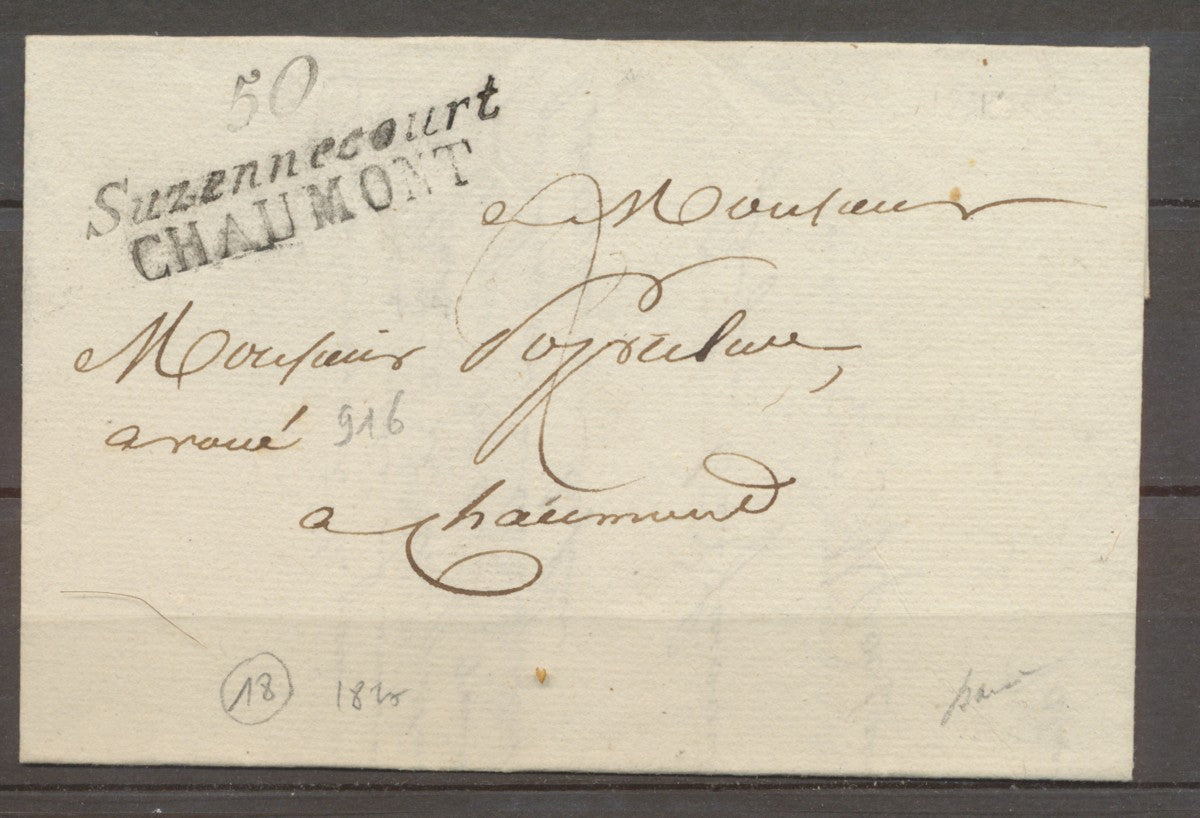 50
Suzennecourt
CHAUMONT
a Monsieur
Monsieur
avoué 916
a Chaumont
18 182